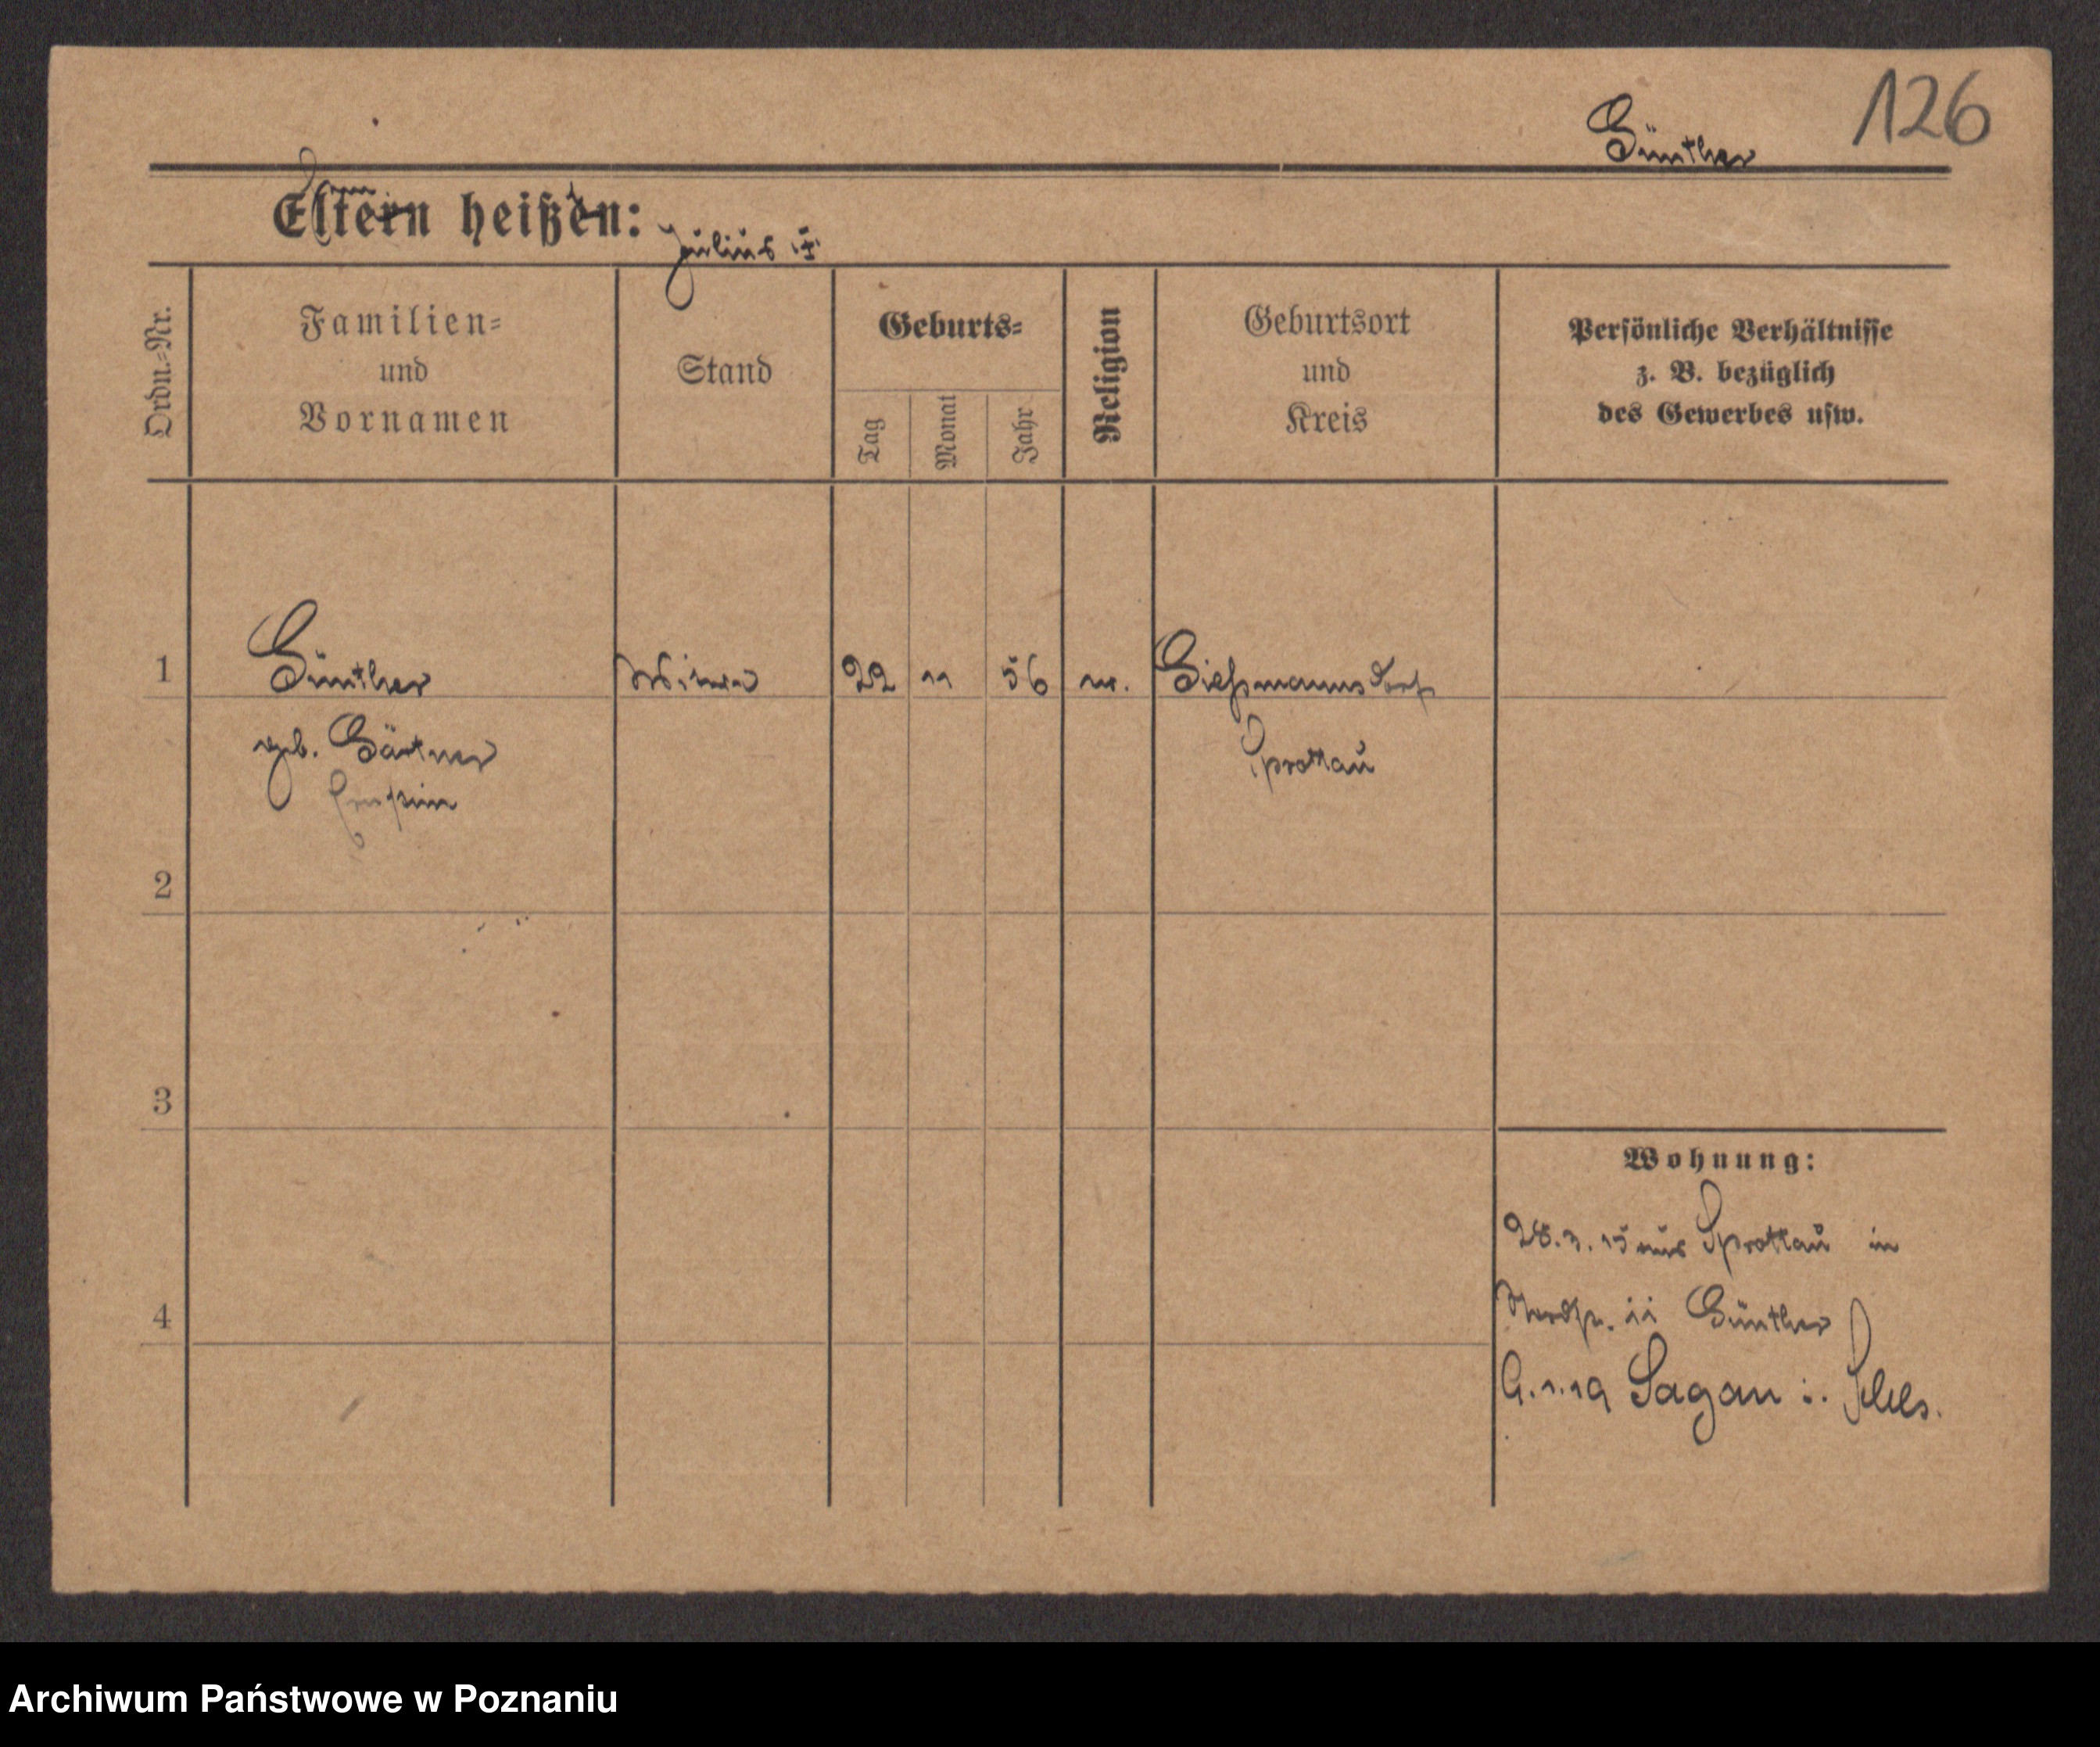 126
Günther
Eltern heißen:
Julius †
Ordn.-Nr.
Familien-
und
Vornamen
Stand
Geburts-
Tag
Monat
Jahr
Religion
Geburtsort
und
Kreis
Persönliche Verhältnisse
z. B. bezüglich
des Gewerbes usw.
1
Günther
Witwe
22
11
56
ev.
Gießmannsdorf
geb. Gärtner
Sprottau
Ernstine
2
3
4
Wohnung:
28.3.15 aus Sprottau in
Günther
9.1.19 Sagan i. Schles.
Archiwum Państwowe w Poznaniu